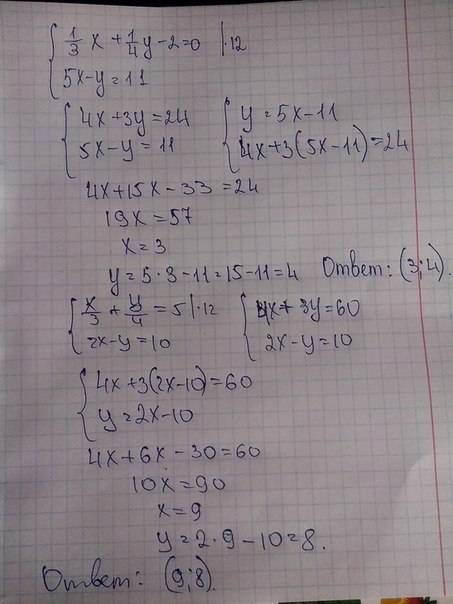 { 1/3 x + 1/4 y - 2 = 0 | · 12
{ 5x - y = 11
{ 4x + 3y = 24 { y = 5x - 11
{ 5x - y = 11 { 4x + 3(5x - 11) = 24
4x + 15x - 33 = 24
19x = 57
x = 3
y = 5 · 3 - 11 = 15 - 11 = 4 Ответ: (3; 4).
{ x/3 + y/4 = 5 | · 12 { 4x + 3y = 60
{ 2x - y = 10 { 2x - y = 10
{ 4x + 3(2x - 10) = 60
{ y = 2x - 10
4x + 6x - 30 = 60
10x = 90
x = 9
y = 2 · 9 - 10 = 8.
Ответ: (9; 8).